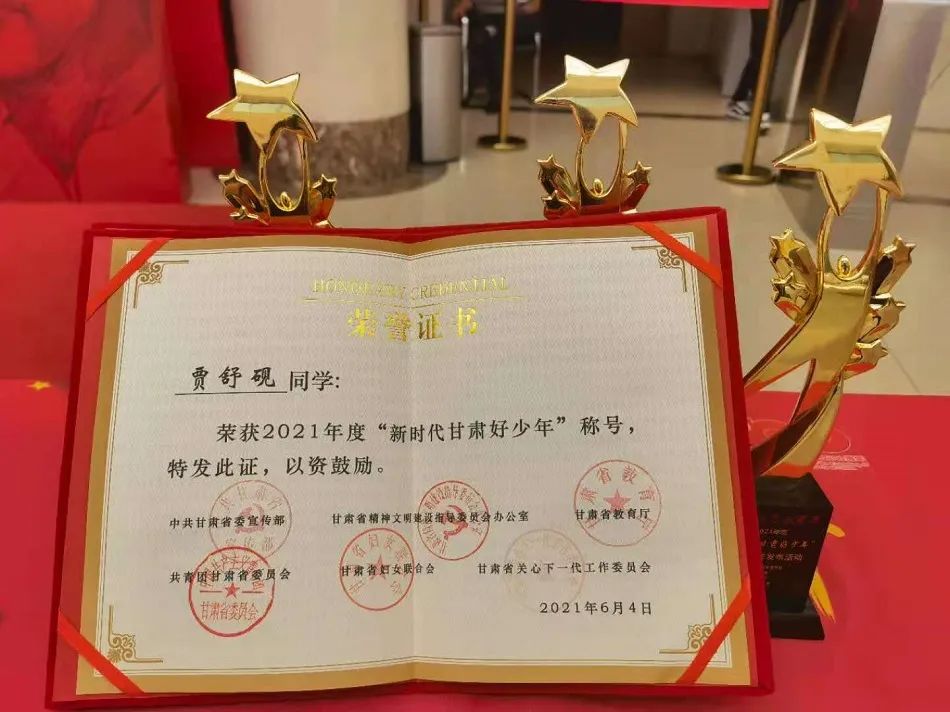 HONORARY CREDENTIAL
荣誉证书
贾舒砚 同学:
荣获2021年度“新时代甘肃好少年”称号,
特发此证,以资鼓励。
中共甘肃省委宣传部 甘肃省精神文明建设指导委员会办公室 甘肃省教育厅
共青团甘肃省委员会 甘肃省妇女联合会 甘肃省关心下一代工作委员会
2021年6月4日
甘肃省教育厅
甘肃省委员会
2021年度
发布活动